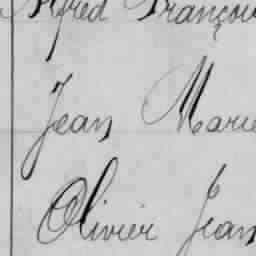 Alfred François
Jean Marie
Olivier Jean